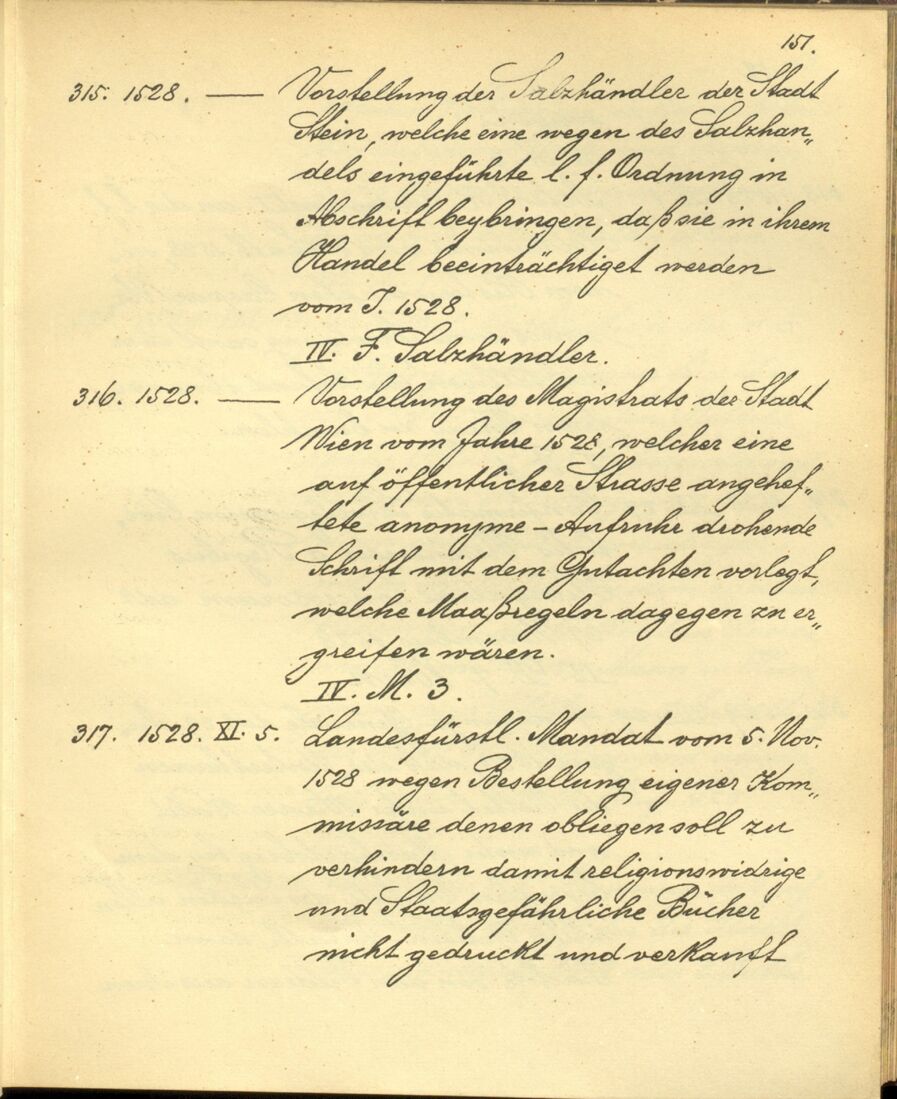 151.
315. 1528. — Vorstellung der Salzhändler der Stadt
Stein, welche eine wegen des Salzhan„
dels eingeführte l. f. Ordnung in
Abschrift beybringen, daß sie in ihrem
Handel beeinträchtiget werden
vom J. 1528.
IV. F. Salzhändler.
316. 1528. — Vorstellung des Magistrats der Stadt
Wien vom Jahre 1528, welcher eine
auf öffentlicher Strasse angehef„
tete anonyme – Aufruhr drohende
Schrift mit dem Gutachten vorlegt,
welche Maaßregeln dagegen zu er„
greifen wären.
IV. M. 3.
317. 1528. XI. 5. Landesfürstl. Mandat vom 5. Nov.
1528 wegen Bestellung eigener Kom„
missäre denen obliegen soll zu
verhindern damit religionswidrige
und Staatsgefährliche Bücher
nicht gedruckt und verkauft